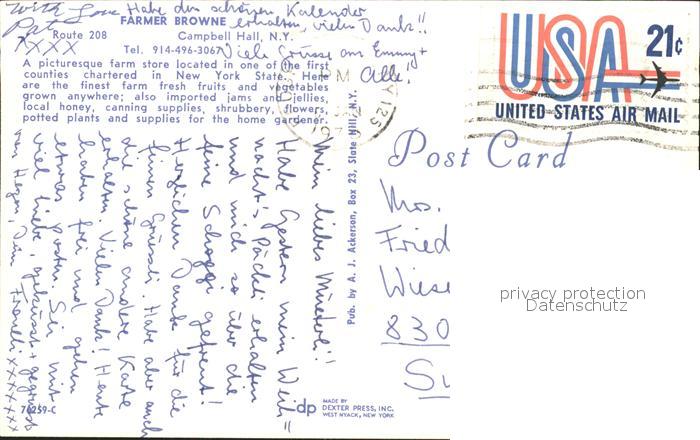 With Love
Pat
XXXX
Habe den schönen Kalender
erhalten, vielen Dank!!
Viele Grüsse an Emmy +
Alle!
FARMER BROWNE
Route 208 Campbell Hall, N.Y.
Tel. 914-496-3067
A picturesque farm store located in one of the first
counties chartered in New York State. Here
are the finest farm fresh fruits and vegetables
grown anywhere; also imported jams and jellies,
local honey, canning supplies, shrubbery, flowers,
potted plants and supplies for the home gardener.
Mein liebes Mütterl!!
Habe Gestern mein Weih=
nacht's Päckli erhalten
und mich so über die
feine Schoggi gefreut!
Herzlichen Dank für die
feinen Grüessli. Habe aber auch
die schöne andere Karte
erhalten. Vielen Dank! Heute
haben frei und gehen
etwas posten. Sei mit
viel Liebe, geküsst + gegrüsst
von Herzen, Dein
XXXXXX
70259-C
Pub. by A. J. Ackerson, Box 23, Slate Hill, N.Y.
dp
MADE BY
DEXTER PRESS, INC.
WEST NYACK, NEW YORK
USA 21¢
UNITED STATES AIR MAIL
PM
Post Card
Mrs.
Fried
Wiese
830
privacy protection
Datenschutz